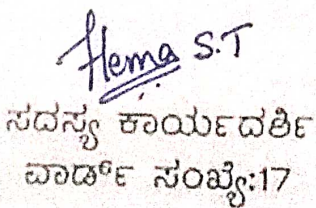 Hema S.T
ಸದಸ್ಯ ಕಾರ್ಯದರ್ಶಿ
ವಾರ್ಡ್ ಸಂಖ್ಯೆ:17